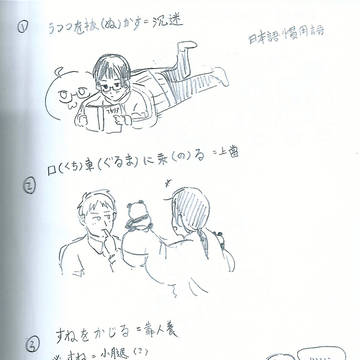 日本語慣用語
① うつつを抜(ぬ)かす=沉迷
② 口(くち)車(ぐるま)に乗(の)る=上當
③ すねをかじる=靠人養
※ すね=小腿(?)